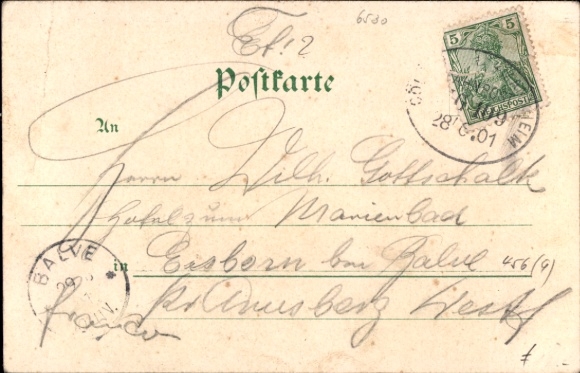 6500
Et. 2
5
REICHSPOST
Postkarte
28 6.01
An
Herrn Wilh. Gottschalk
Hotel zum Marienbad
in Eisborn bei Balve
456 (4)
Kr. Arnsberg Westf
BALVE *
29
franco